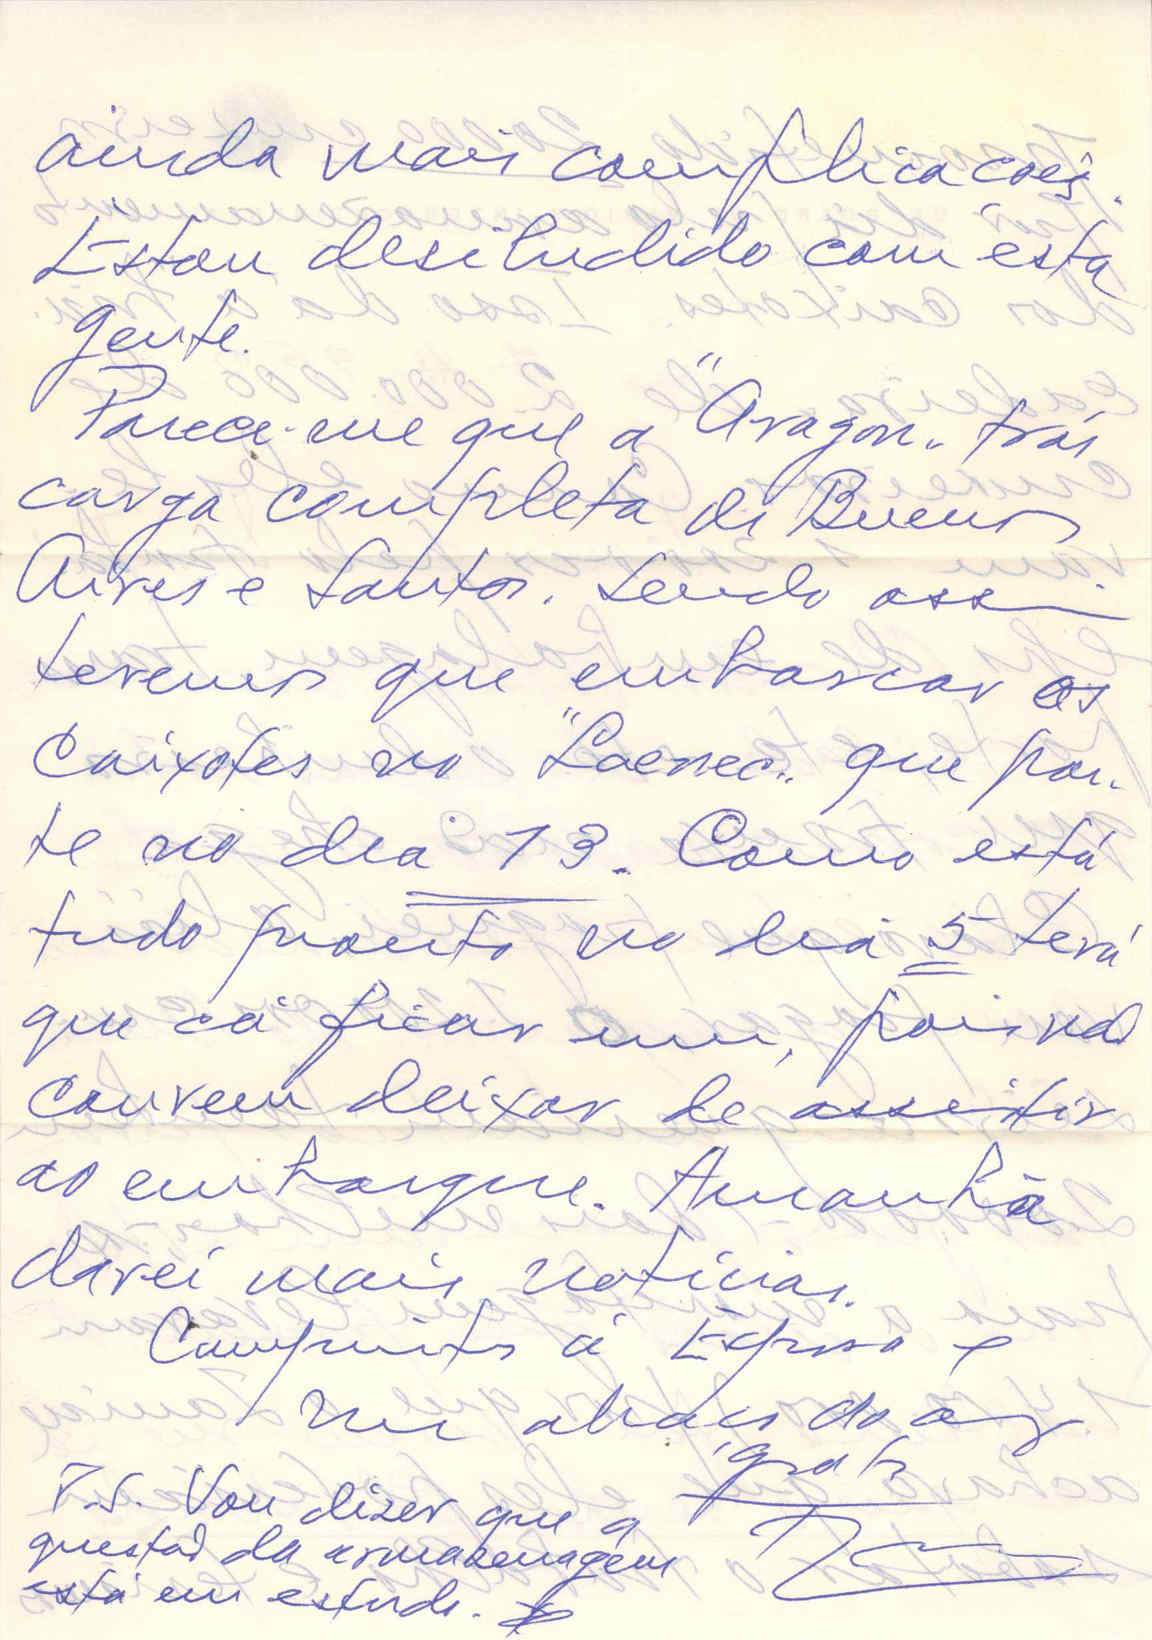 ainda mais complicacoẽs.
Estou desiludido com esta
gente.
Parece-me que a "Aragon" trás
carga completa de Buenos
Aires e Santos. Sendo assim
teremos que embarcar os
caixotes no "Laenec" que par-
te no dia 13. Como está
tudo pronto no dia 5 terá
que cá ficar um, pois não
convem deixar de assistir
ao embarque. Amanhã
darei mais noticias.
Cumpritos á Esposa e
um abraço do am
grato
P.S. Vou dizer que a
questão da armazenagem
está em estudo.